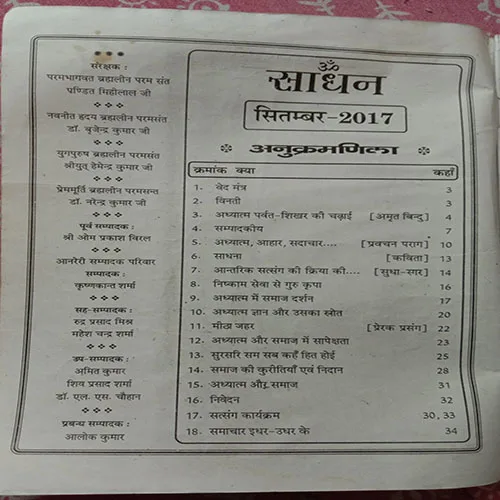 संरक्षक :
परमभागवत ब्रह्मलीन परम संत
पण्डित मिहीलाल जी
नवनीत हृदय ब्रह्मलीन परमसंत
डॉ. बृजेन्द्र कुमार जी
युगपुरुष ब्रह्मलीन परमसंत
श्रीयुत् हेमेन्द्र कुमार जी
प्रेममूर्ति ब्रह्मलीन परमसन्त
डॉ. नरेन्द्र कुमार जी
पूर्व सम्पादक :
श्री ओम प्रकाश विरल
आनरेरी सम्पादक परिवार
सम्पादक :
कृष्णकान्त शर्मा
सह-सम्पादक :
रुद्र प्रसाद मिश्र
महेश चन्द्र शर्मा
उप-सम्पादक :
अमित कुमार
शिव प्रसाद शर्मा
डॉ. एल. एस. चौहान
प्रबन्ध सम्पादक :
आलोक कुमार
ॐ
साधन
सितम्बर-2017
अनुक्रमणिला
क्रमांक क्या कहाँ
1. वेद मंत्र 3
2. विनती 3
3. अध्यात्म पर्वत-शिखर की चढ़ाई [अमृत बिन्दु] 4
4. सम्पादकीय 7
5. अध्यात्म, आहार, सदाचार.... [प्रवचन पराग] 10
6. साधना [कविता] 13
7. आन्तरिक सत्संग की क्रिया की.... [सुधा-सागर] 14
8. निष्काम सेवा से गुरु कृपा 16
9. अध्यात्म में समाज दर्शन 17
10. अध्यात्म ज्ञान और उसका स्रोत 20
11. मीठा जहर [प्रेरक प्रसंग] 22
12. अध्यात्म और समाज में सापेक्षता 23
13. सुरसरि सम सब कहँ हित होई 25
14. समाज की कुरीतियाँ एवं निदान 28
15. अध्यात्म और समाज 31
16. निवेदन 32
17. सत्संग कार्यक्रम 30, 33
18. समाचार इधर-उधर के 34